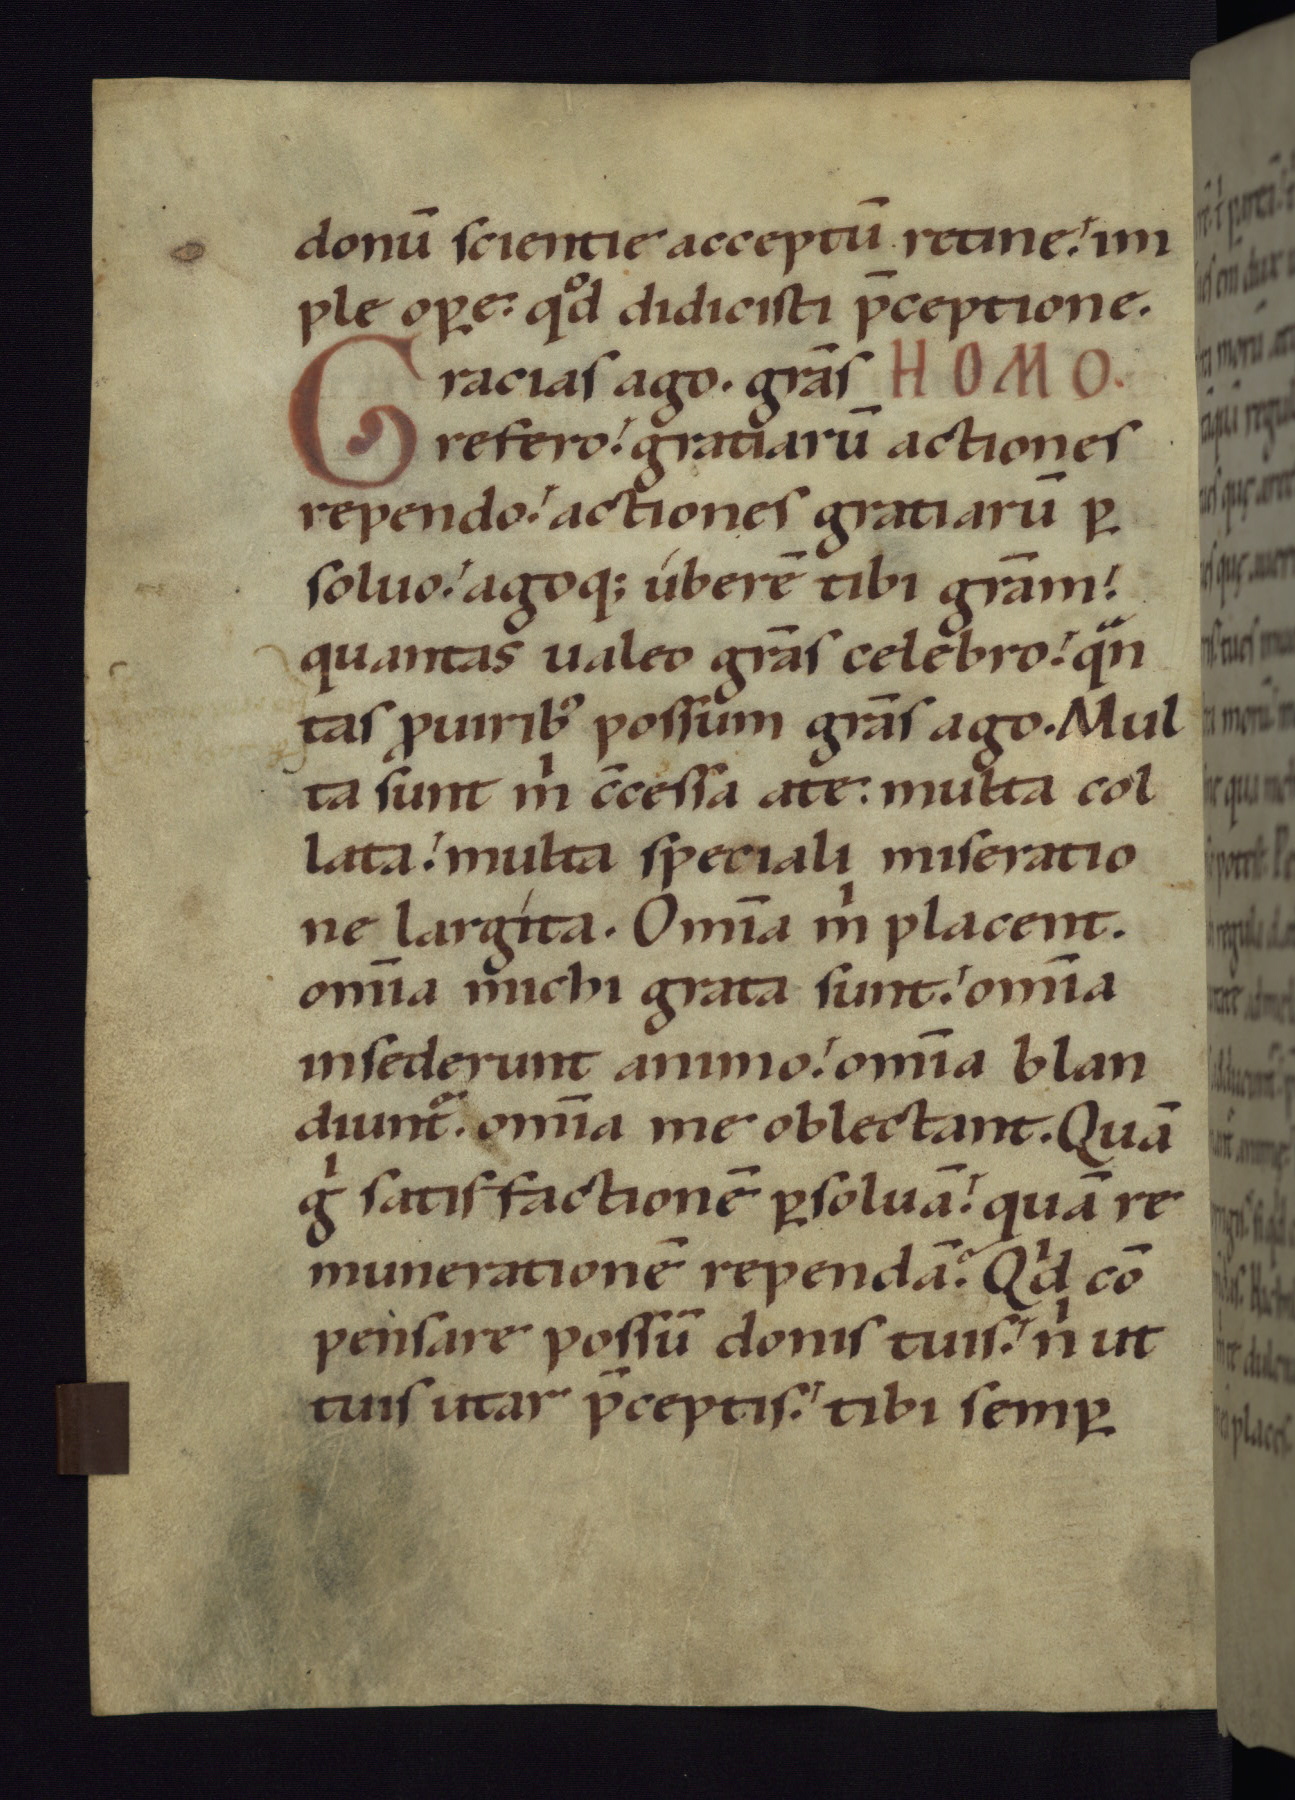 donū scientie acceptū retine. im
ple oꝑe. qͦd didicisti p̄ceptione.
Gracias ago. grās HOMO.
refero. gratiarū actiones
rependo. actiones gratiarū ꝑ
soluo. agoq; úberē tibi grām.
quantas ualeo grās celebro. qᷓn
tas ꝓuirib᷒ possum grās ago. Mul
ta sunt m̍ c̄cessa ate. multa col
lata. multa speciali miseratio
ne largíta. Om̄ia m̍ placent.
om̄ia michi grata sunt. om̄ia
insederunt animo. om̄ia blan
diunt᷑. om̄ia me oblectant. Quā
g̍ satisfactionē ꝑsoluā. quā re
munerationē rependā. Qͥd cō
pensare possū donis tuis. n̍ ut
tuis utar p̄ceptis. tibi semꝑ